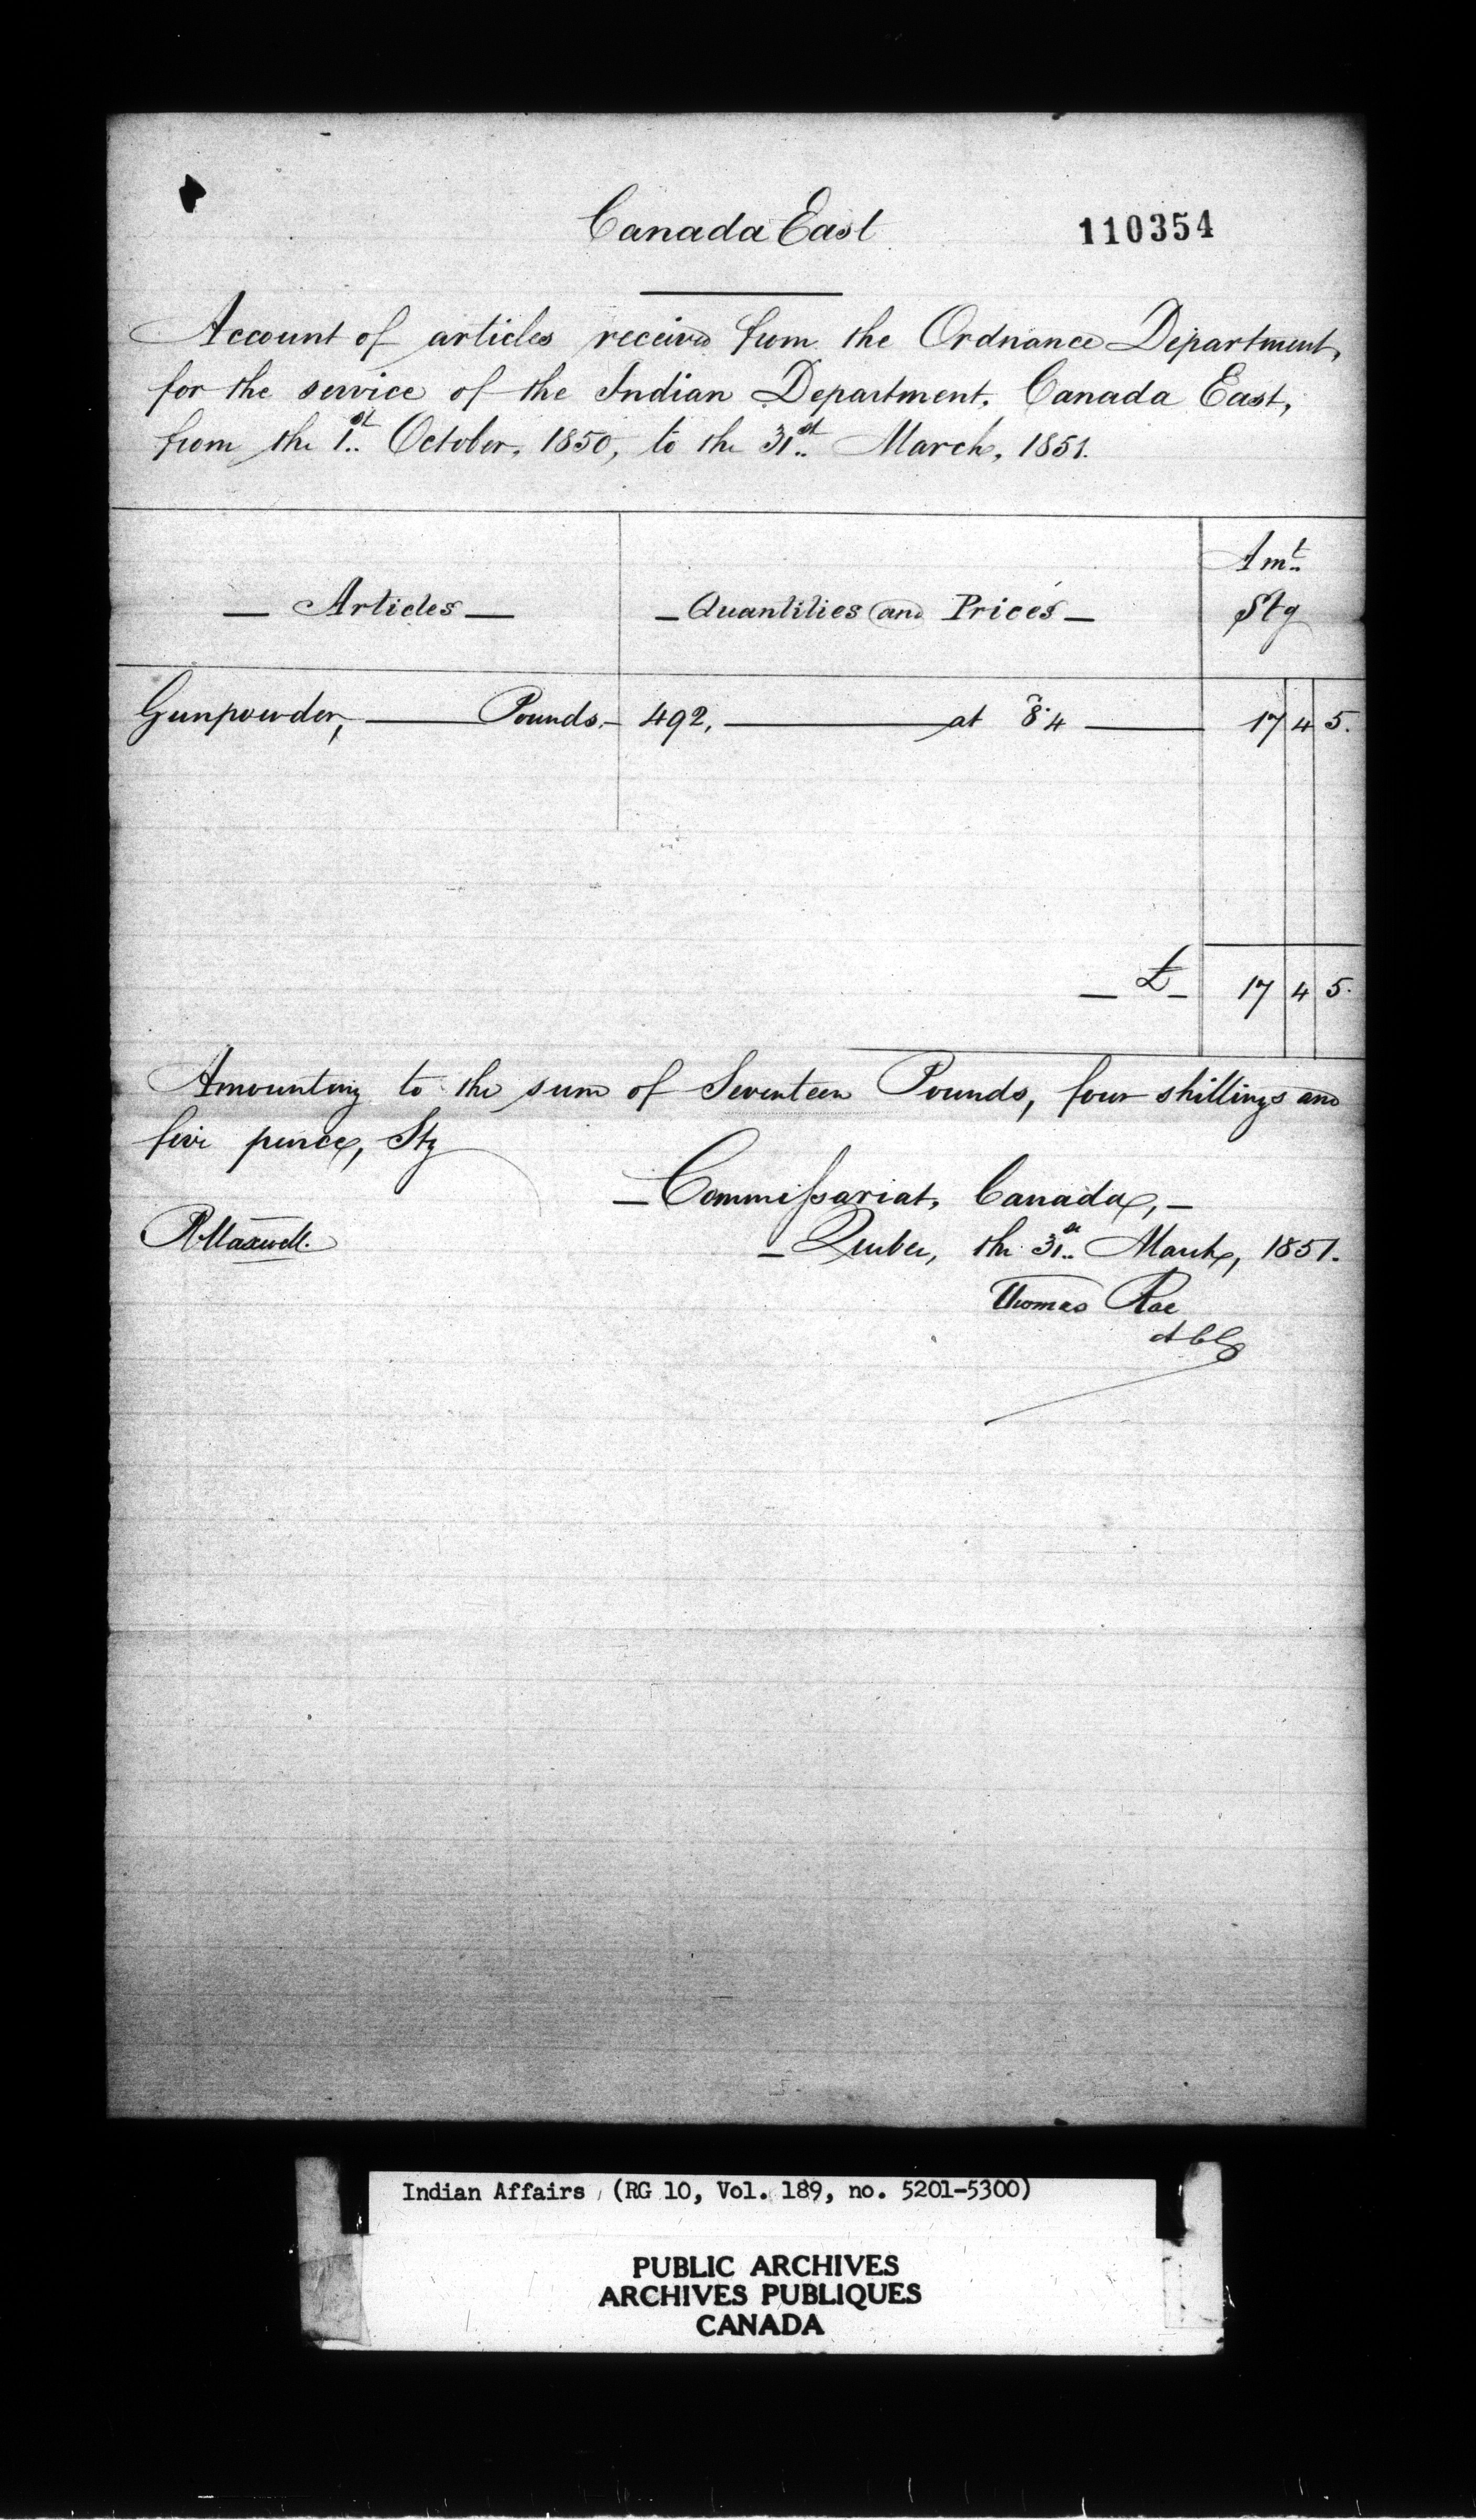 Canada East
110354
Account of articles received from the Ordnance Department,
for the service of the Indian Department, Canada East,
from the 1st October, 1850, to the 31st March, 1851.
Amt
— Articles — — Quantities and Prices — Stg
Gunpowder, — Pounds. — 492, — at 8.4 — 17 4 5.
— £ — 17 4 5.
Amounting to the sum of Seventeen Pounds, four shillings and
five pence, Stg
— Commissariat, Canada, —
R Maxwell.
— Quebec, the 31st March, 1851.
Thomas Rae
ACG
Indian Affairs (RG 10, Vol. 189, no. 5201-5300)
PUBLIC ARCHIVES
ARCHIVES PUBLIQUES
CANADA